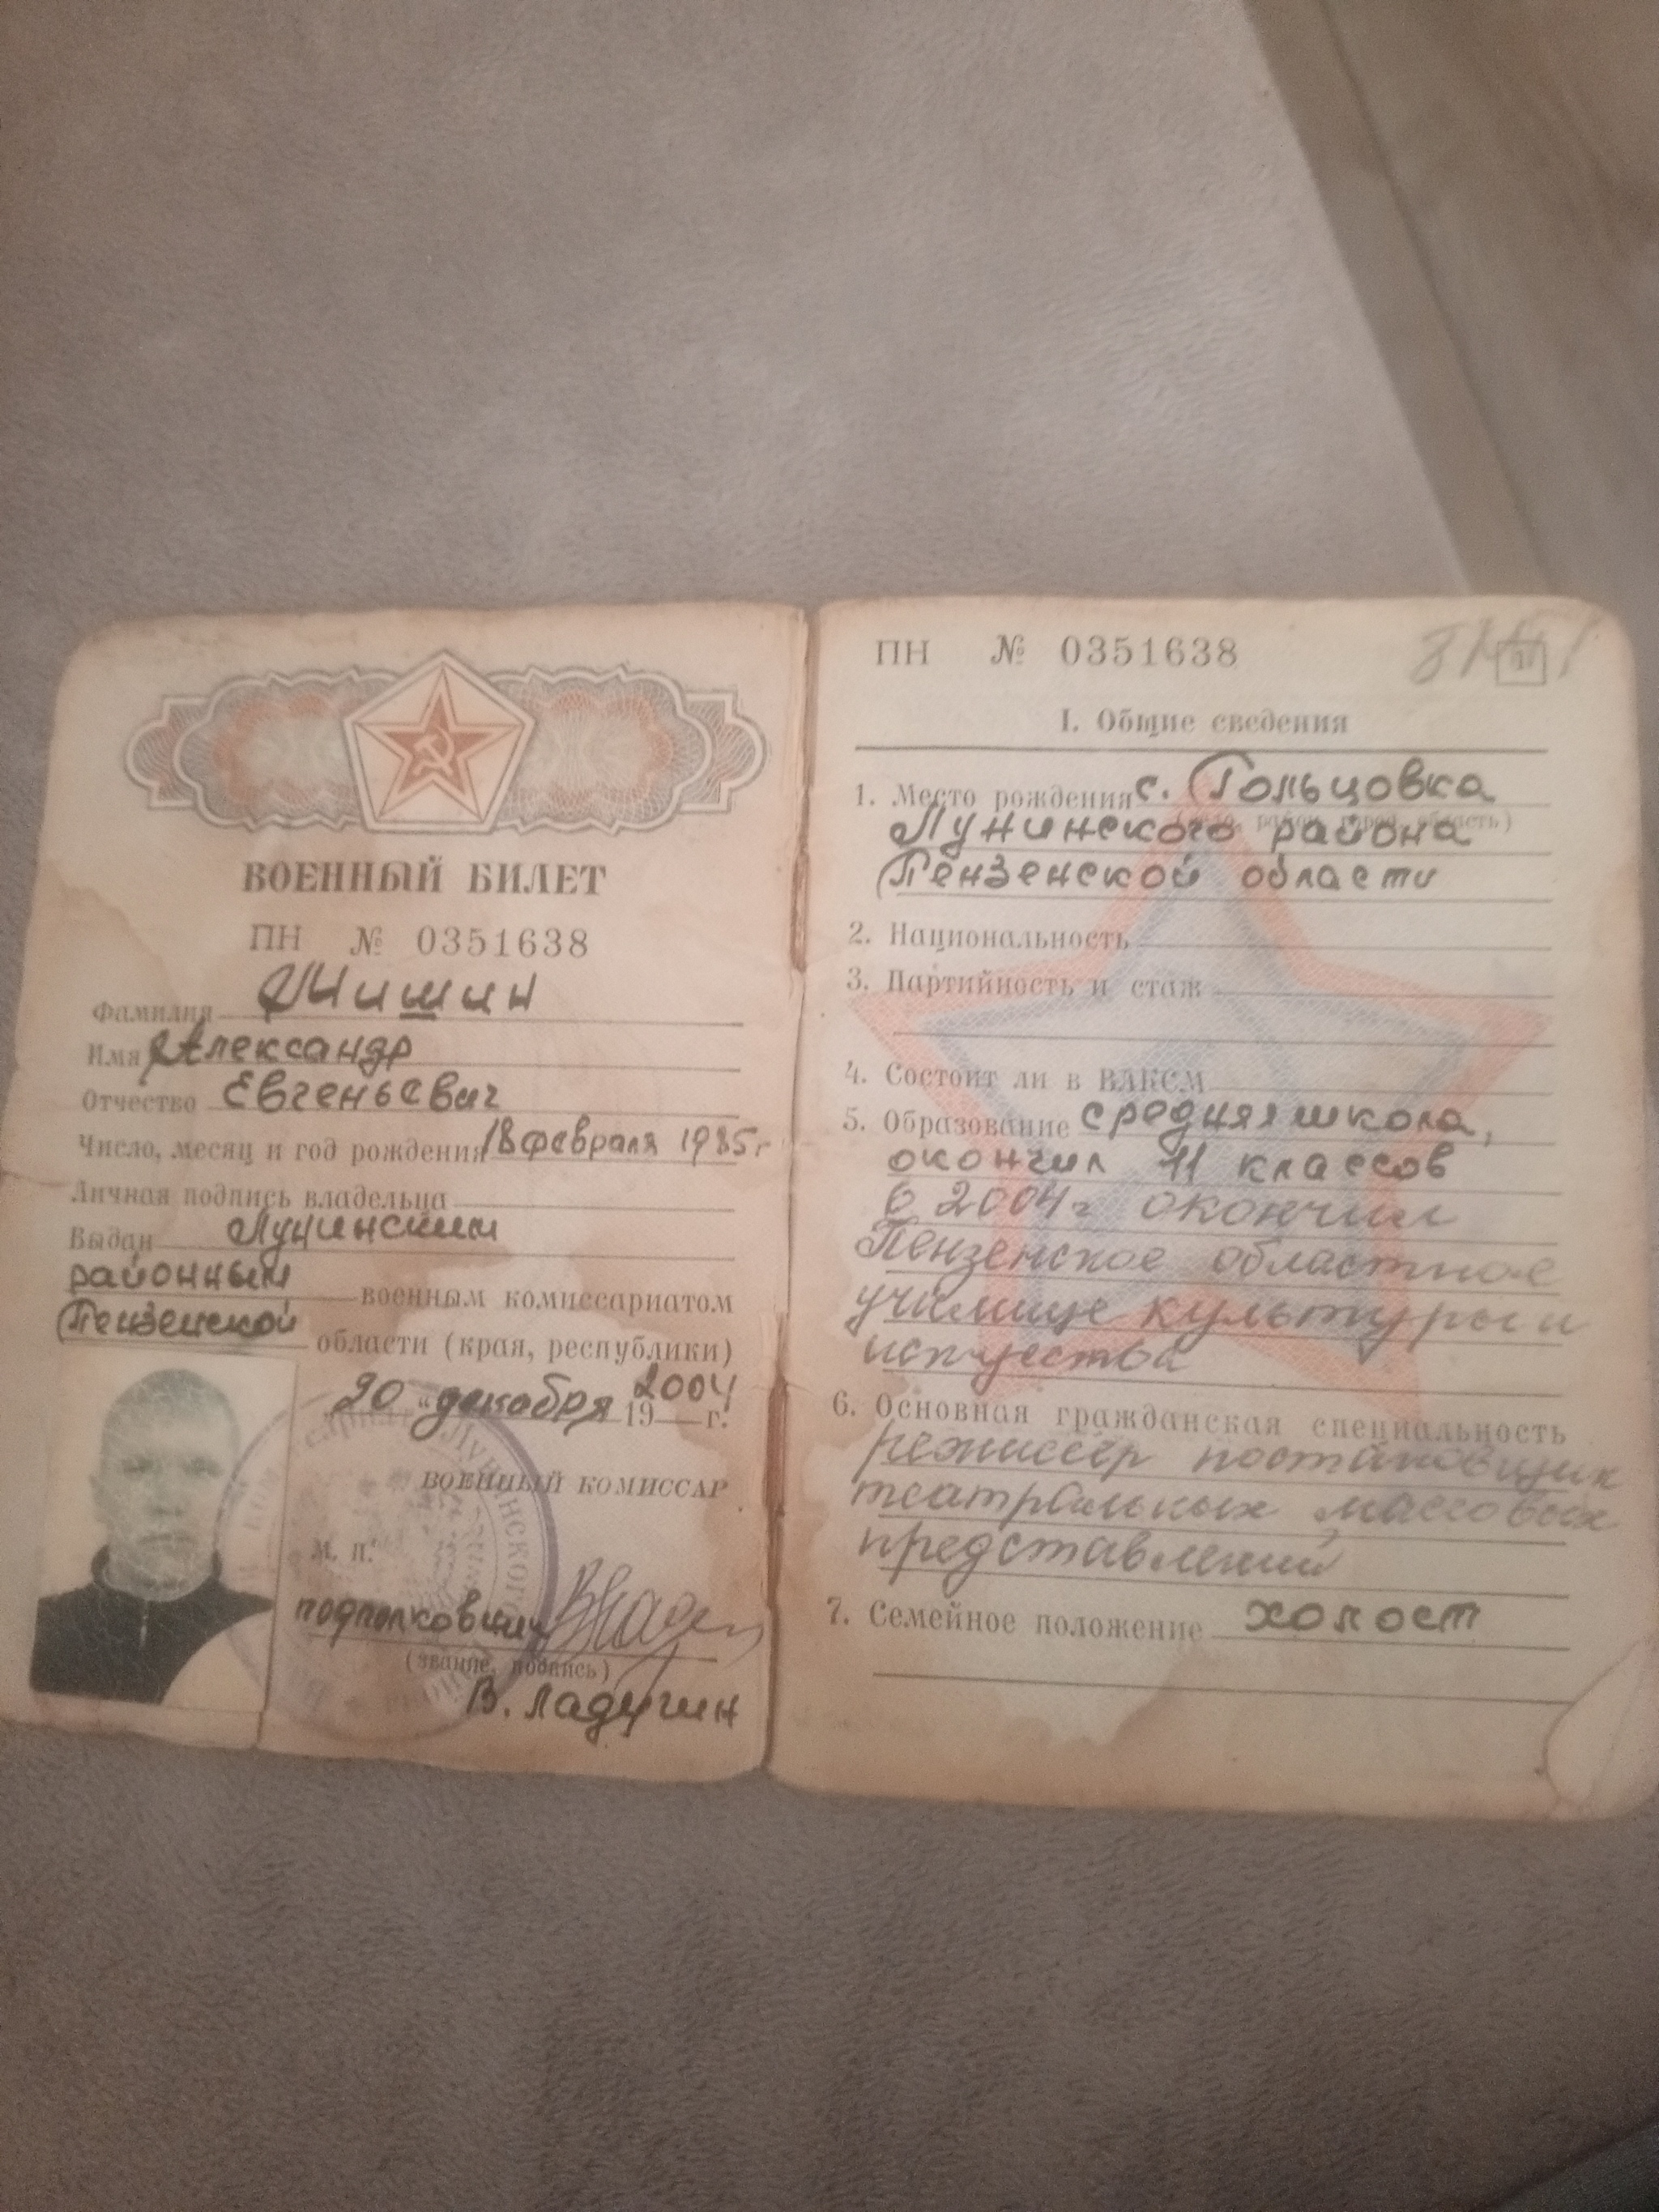 ВОЕННЫЙ БИЛЕТ
ПН № 0351638
Фамилия Мишин
Имя Александр
Отчество Евгеньевич
Число, месяц и год рождения 18 февраля 1985г
Личная подпись владельца
Выдан Лунинским
районным военным комиссариатом
Пензенской области (края, республики)
20 " декабря 2004 19 г.
ВОЕННЫЙ КОМИССАР
М. П.
подполковник
(звание, подпись)
В. Ладугин
ПН № 0351638
1
I. Общие сведения
1. Место рождения с. Гольцовка
Лунинского района
Пензенской области
2. Национальность
3. Партийность и стаж
4. Состоит ли в ВЛКСМ
5. Образование средняя школа,
окончил 11 классов
в 2004г окончил
Пензенское областное
училище культуры и
искуства
6. Основная гражданская специальность
режиссёр постановщик
театральных массовых
представлений
7. Семейное положение холост